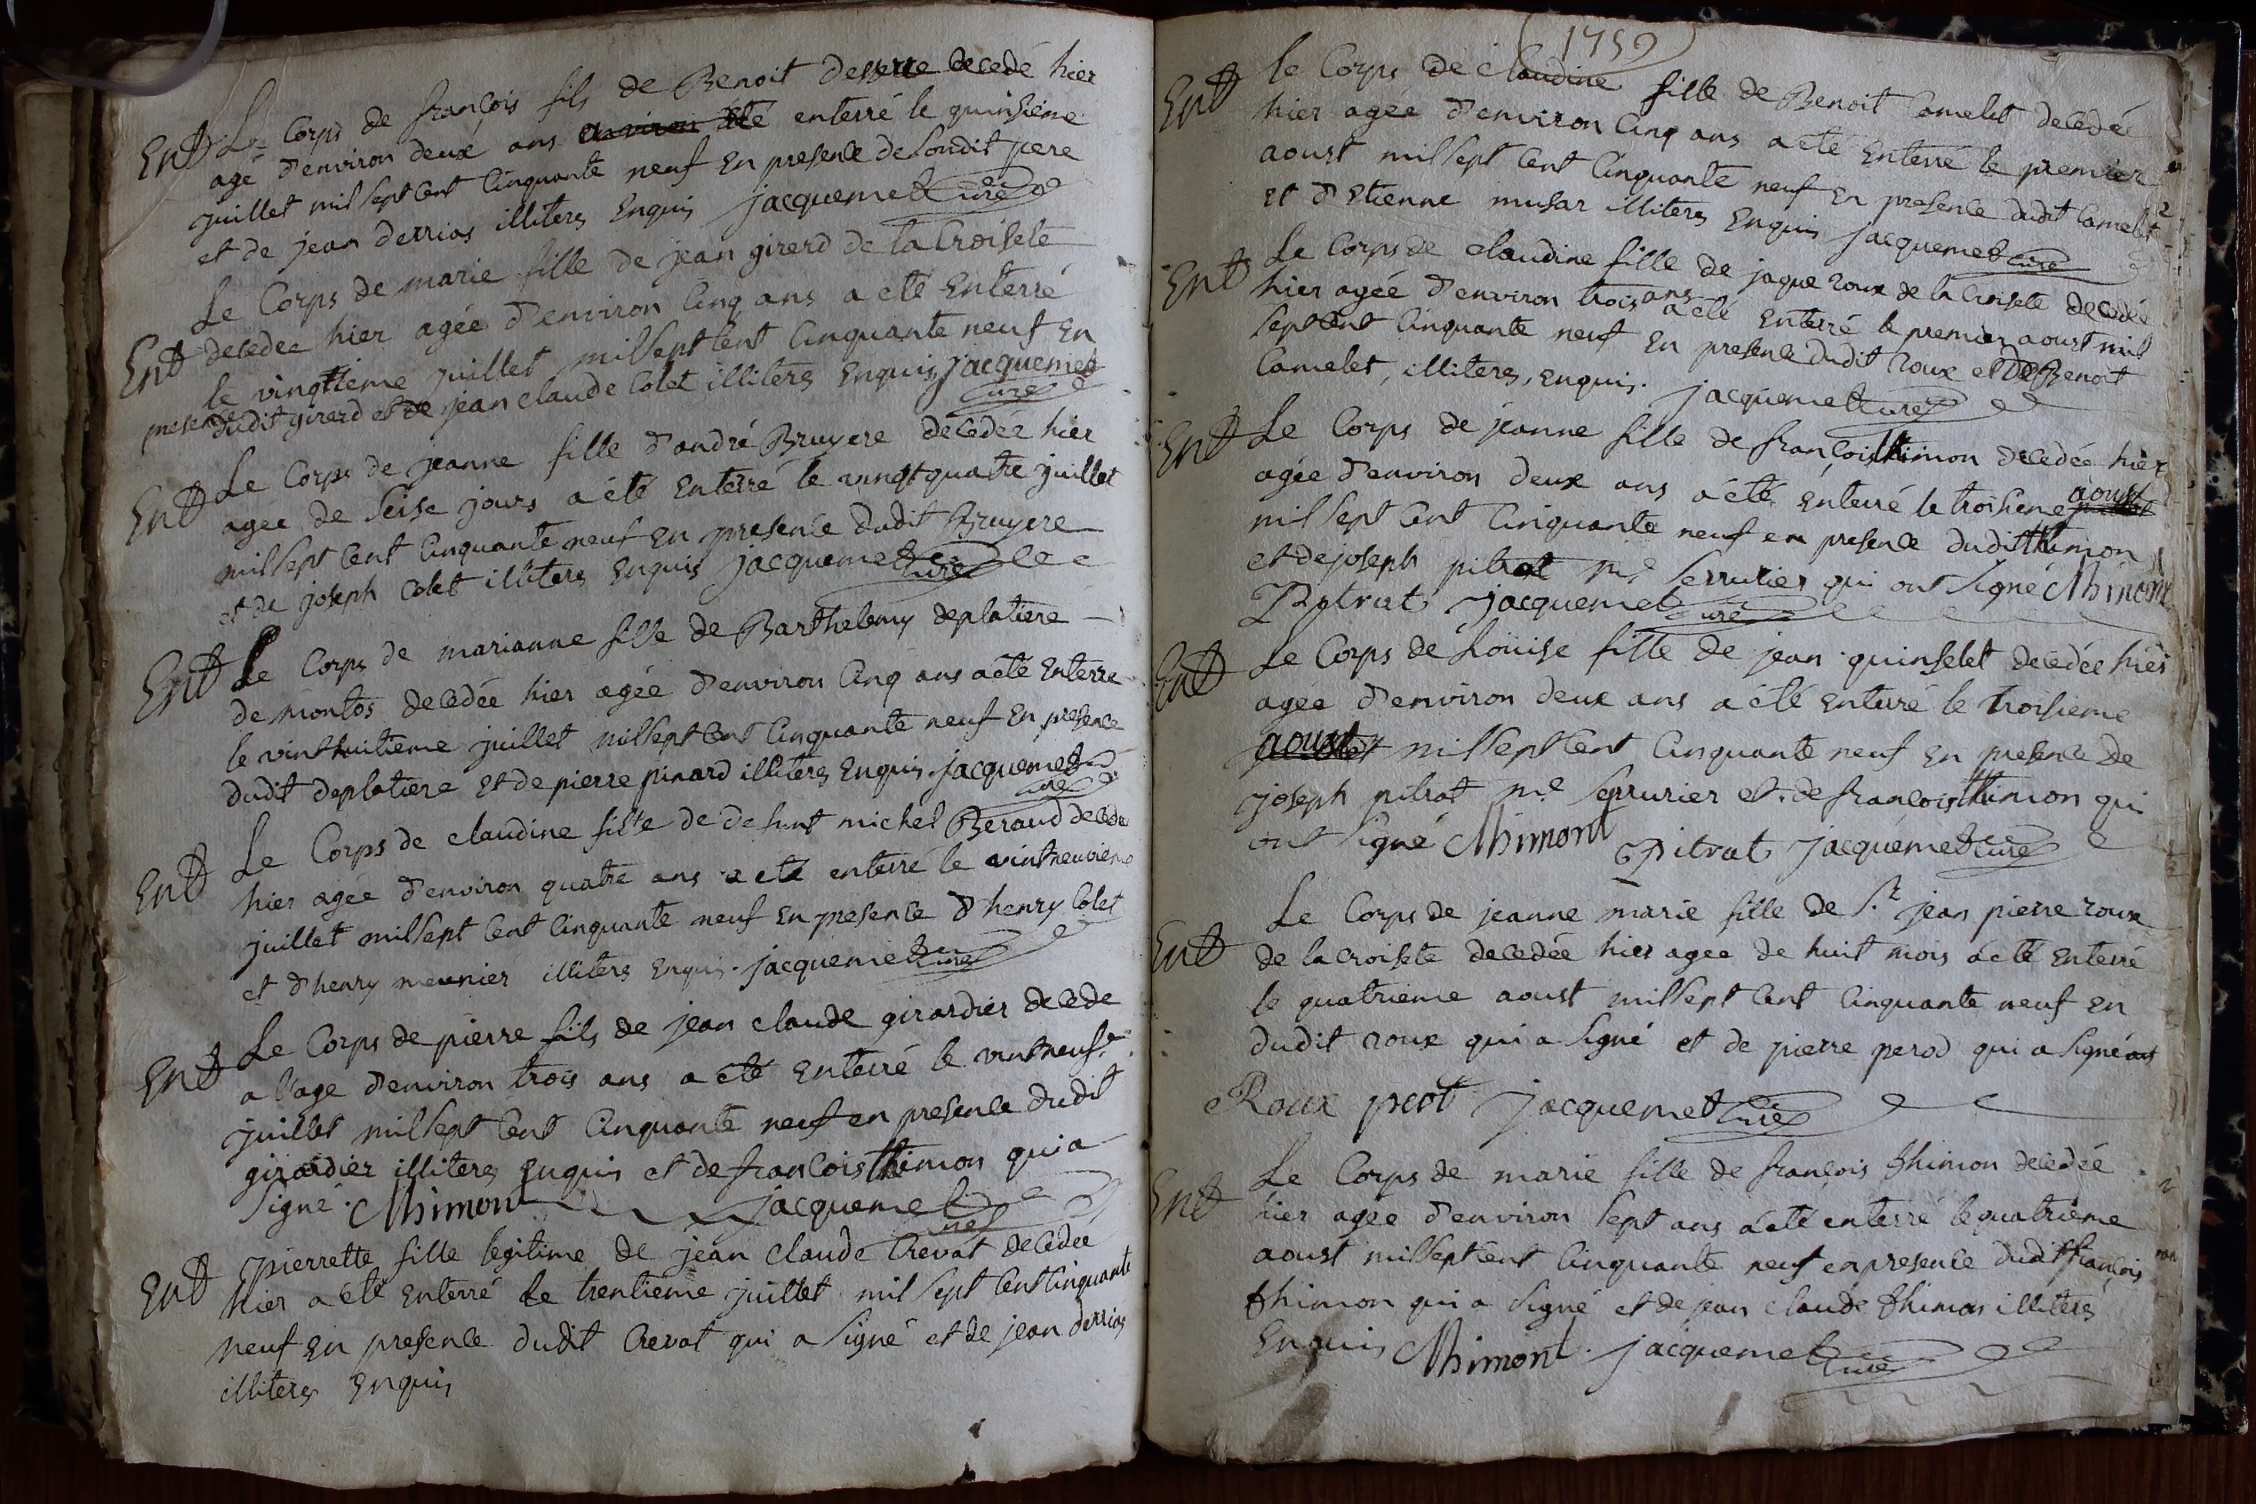 Ent
Le Corps de françois fils de Benoit deserre decedé hier
agé d'environ deux ans enterré le quinsiéme
juillet mil sept cent cinquante neuf En presence de sondit pere
et de jean derrias illiteres Enquis jacquemet curé
Le Corps de marie fille de jean girerd de la Croisete
Ent decedée hier agée d'environ Cinq ans a été Enterré
le vingttieme juillet mil sept cent Cinquante neuf En
presence dudit girerd et de jean claude Colet illiteres Enquis jacquemet
curé
Ent Le Corps de jeanne fille d'andré Bruyere decedée hier
agee de seise jours a été Enterré le vingt quatre juillet
mil sept cent Cinquante neuf En presence dudit Bruyere
et de joseph Colet illiteres Enquis jacquemet curé
Ent Le Corps de marianne fille de Barthelemy deplatiere
de montos decedée hier agée d'environ Cinq ans a été Enterré
le vint huitieme juillet mil sept cent Cinquante neuf En presence
dudit deplatiere et de pierre pinard illiteres Enquis jacquemet
curé
Ent Le Corps de claudine fille de defunt michel Beraud decedée
hier agée d'environ quatre ans a été enterré le vintneuvieme
juillet mil sept cent Cinquante neuf En presence d'henry Colet
et d'henry meunier illiteres Enquis jacquemet curé
Ent Le Corps de pierre fils de jean claude girardier decede
a l'age d'environ trois ans a été Enterré le vintneufe
juillet mil sept cent Cinquante neuf en presence dudit
girardier illiteres Enquis et de francois thimon qui a
signé. Mhimont jacquemet
curé
Ent Pierrette fille legitime de jean claude Crevat decedée
hier a été Enterré le trentieme juillet mil sept cent Cinquante
neuf En presence dudit Crevat qui a signé et de jean derrias
illiteres Enquis
(1759)
Ent le Corps de claudine fille de Benoit Camelet decedée
hier agée d'environ Cinq ans a été Enterré le premier
aoust mil sept cent Cinquante neuf En presence dudit Camelet
et d'Etienne musar illiteres Enquis jacquemet curé
Ent Le Corps de claudine fille de jaque roux de la Croisete decedée
hier agée d'environ trois ans a été Enterré le premier aoust mil
sept cent Cinquante neuf En presence dudit roux et de Benoit
Camelet, illiteres, enquis. jacquemet curé
Ent Le Corps de jeanne fille de françois thimon decedée hier
agée d'environ deux ans a été Enterré le troisieme aoust
mil sept cent Cinquante neuf en presence dudit thimon
et de joseph pitrat me serrurier qui ont signé Mhimont
Pitrat jacquemet curé
Ent Le Corps de Loüise fille de jean quinselet decedée hier
agée d'environ deux ans a été Enterré le troisieme
aoust mil sept cent Cinquante neuf En presence de
joseph pitrat me serrurier et de francois thimon qui
ont signé Mhimont Pitrat jacquemet curé
Le Corps de jeanne marie fille de sr jean pierre roux
Ent de la croisete decedée hier agee de huit mois a été Enterré
le quatrieme aoust mil sept cent Cinquante neuf En
dudit roux qui a signé et de pierre perod qui a signé
Roux perot jacquemet curé
Le Corps de marie fille de françois thimon decedée
Ent hier agée d'environ sept ans a été enterré le quatrieme
aoust mil sept cent Cinquante neuf en presence dudit françois
thimon qui a signé et de jean claude thimon illiteré
Enquis Mhimont. jacquemet curé